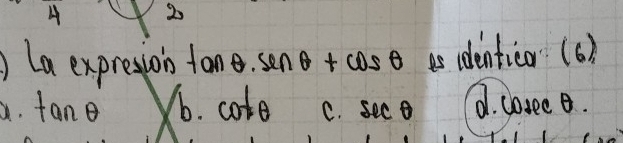 4 2
) La expresión tan θ. sen θ + cos θ es idéntica (6)
a. tan θ b. cot θ c. sec θ d. cosec θ.